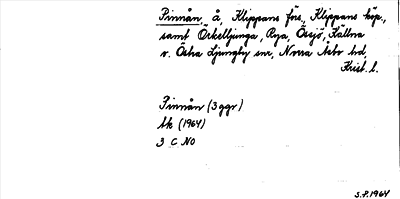 Pinnån, å, Klippans förs., Klippans köp.,
samt Örkelljunga, Rya, Össjö, Källna
o. Östra Ljungby snr, Norra Åsbo hd,
Krist. l.
Pinnån (3 ggr)
bk (1964)
3 C NO
S.P. 1964